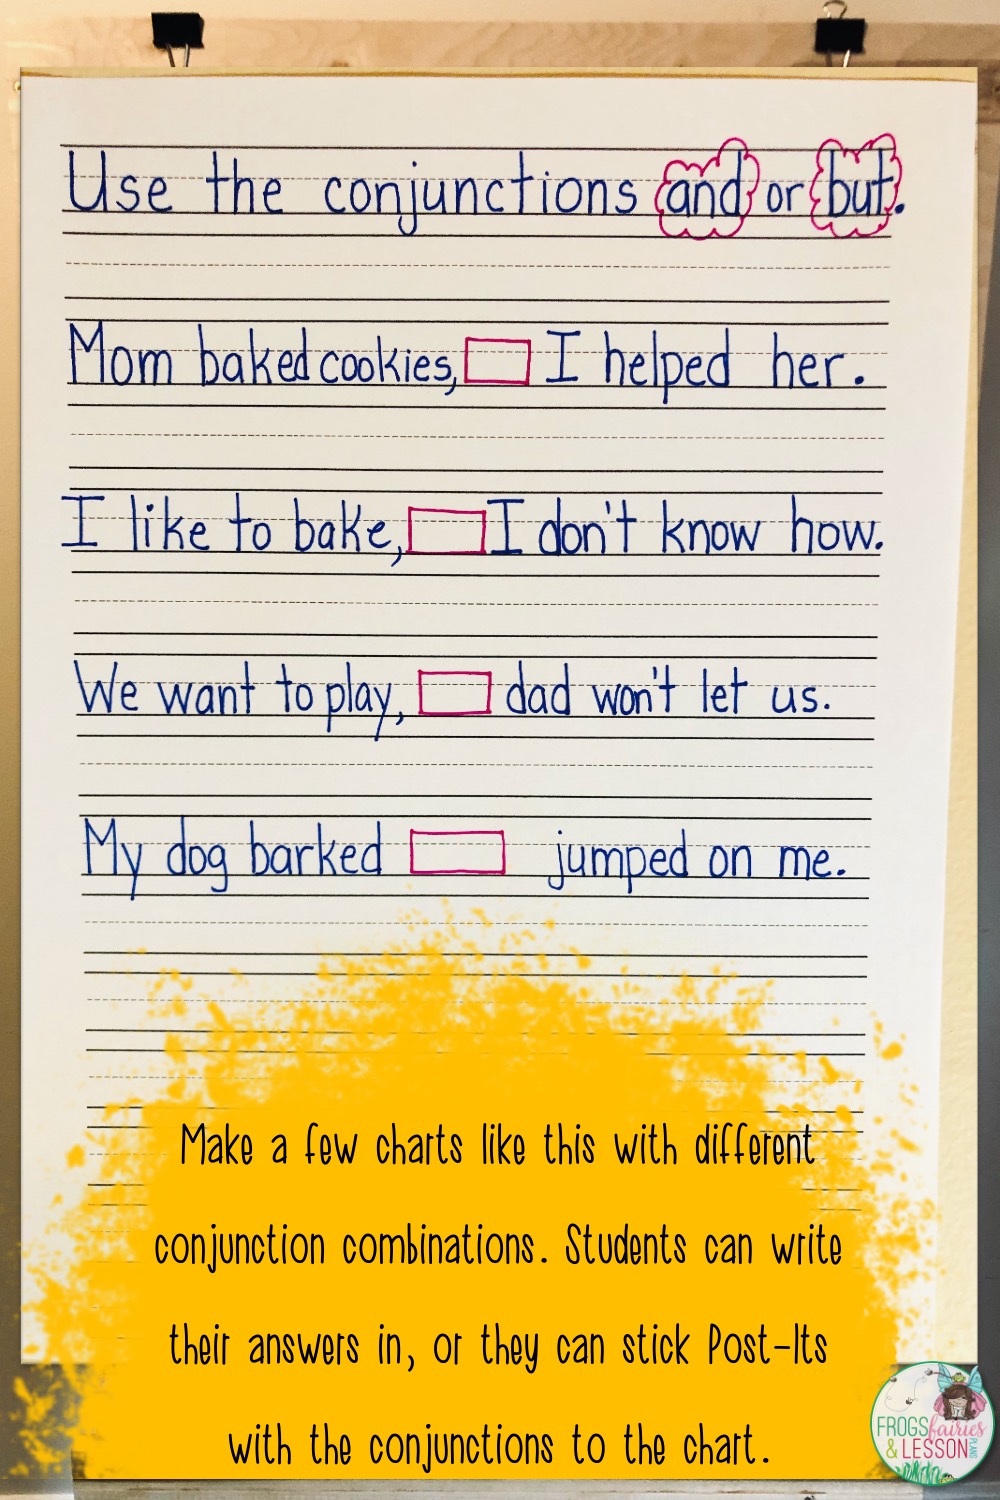 Use the conjunctions and or but.
Mom baked cookies, I helped her.
I like to bake, I don't know how.
We want to play, dad won't let us.
My dog barked jumped on me.
Make a few charts like this with different
conjunction combinations. Students can write
their answers in, or they can stick Post-Its
with the conjunctions to the chart.
FROGS fairies
& LESSON PLANS